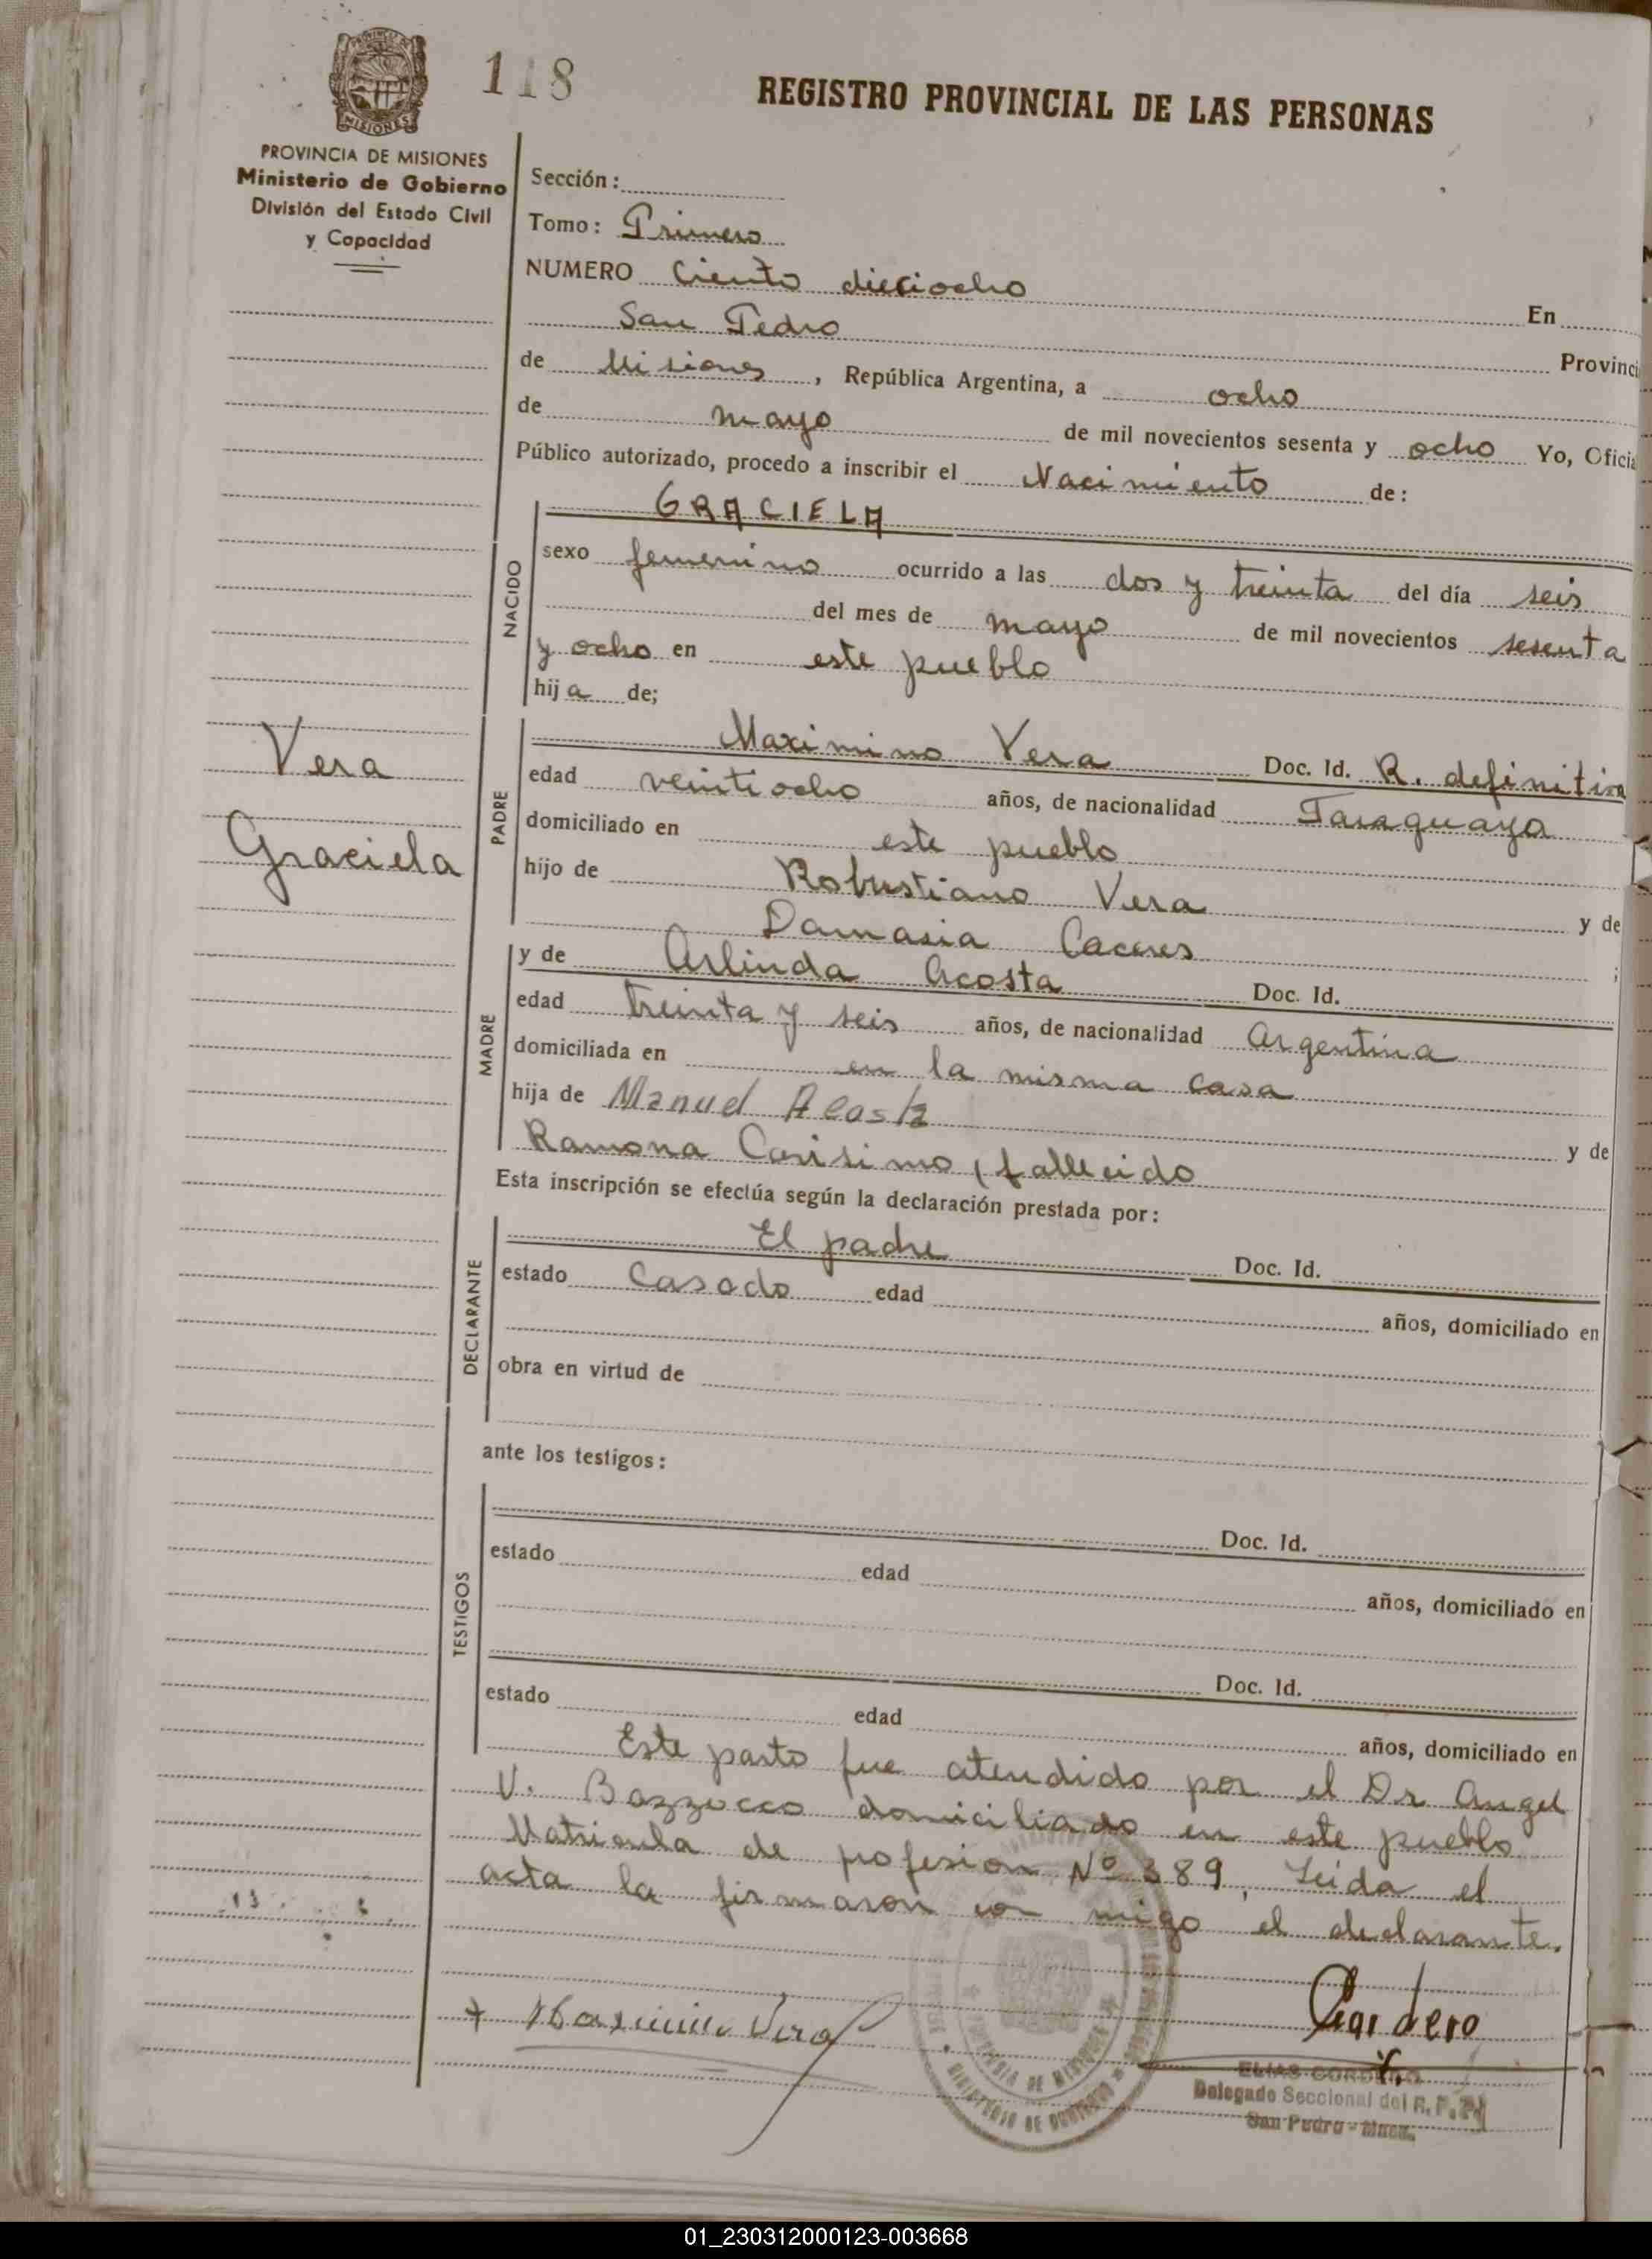 118
REGISTRO PROVINCIAL DE LAS PERSONAS
MISIONES
PROVINCIA DE MISIONES
Ministerio de Gobierno
División del Estado Civil
y Capacidad
Sección:
Tomo: Primero
NUMERO Ciento dieciocho En
San Pedro Provinci
de Misiones, República Argentina, a ocho
de mayo de mil novecientos sesenta y ocho Yo, Oficia
Público autorizado, procedo a inscribir el Nacimiento de:
GRACIELA
NACIDO
sexo femenino ocurrido a las dos y treinta del día seis
del mes de mayo de mil novecientos sesenta
y ocho en este pueblo
hija de;
Vera
Graciela
PADRE
Maximino Vera Doc. Id. R. definitiva
edad veintiocho años, de nacionalidad Paraguaya
domiciliado en este pueblo
hijo de Robustiano Vera y de
Damasia Caceres ;
MADRE
y de Arlinda Acosta Doc. Id.
edad treinta y seis años, de nacionalidad Argentina
domiciliada en en la misma casa
hija de Manuel Acosta y de
Ramona Carisimo, fallecido
Esta inscripción se efectúa según la declaración prestada por:
DECLARANTE
El padre Doc. Id.
estado Casado edad años, domiciliado en
obra en virtud de
ante los testigos:
TESTIGOS
Doc. Id.
estado edad años, domiciliado en
Doc. Id.
estado edad años, domiciliado en
Este parto fue atendido por el Dr Angel
V. Bazzocco domiciliado en este pueblo
Matricula de profesion Nº 389, Leida el
acta la firmaron con migo el declarante.
Maximino Vera
Cordero
PROVINCIA DE MISIONES
MINISTERIO DE GOBIERNO
ELIAS CORDERO
Delegado Seccional del R. P. P.
San Pedro - Mnes.
01_230312000123-003668